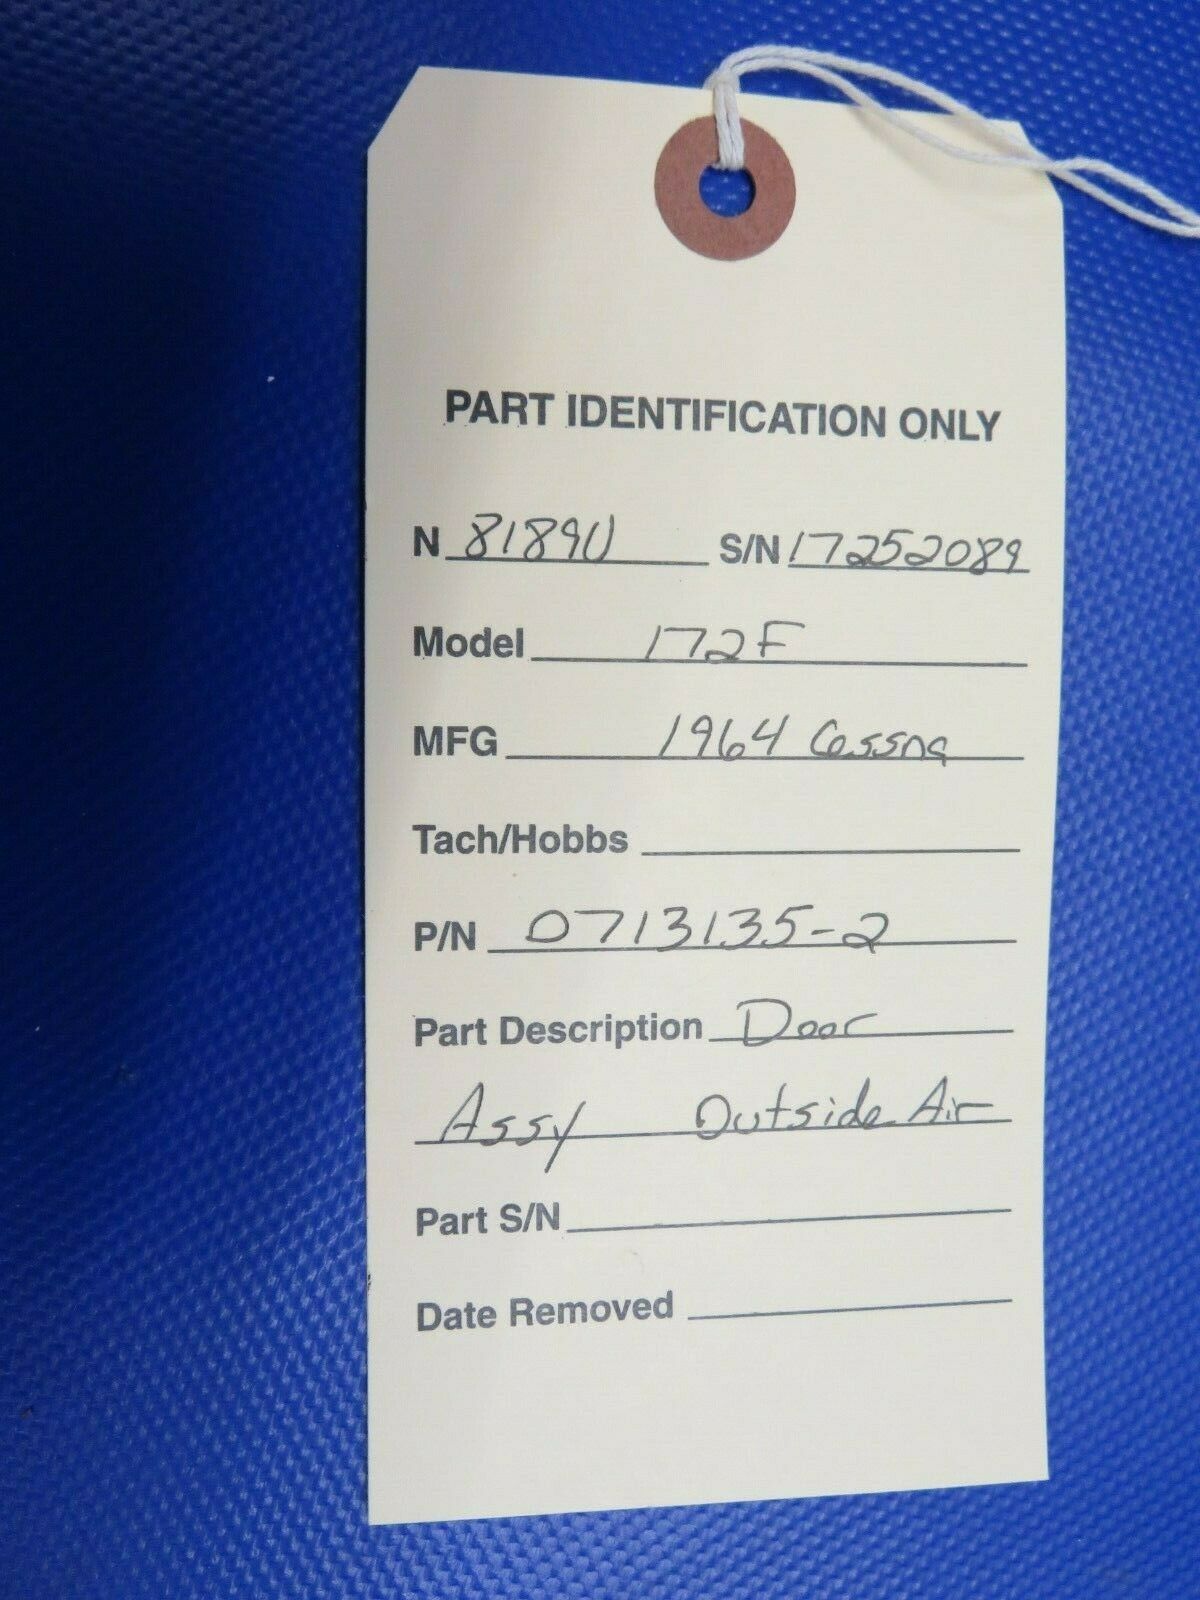 PART IDENTIFICATION ONLY
N 8189U S/N 17252089
Model 172F
MFG 1964 Cessna
Tach/Hobbs
P/N 0713135-2
Part Description Door
Assy Outside Air
Part S/N
Date Removed